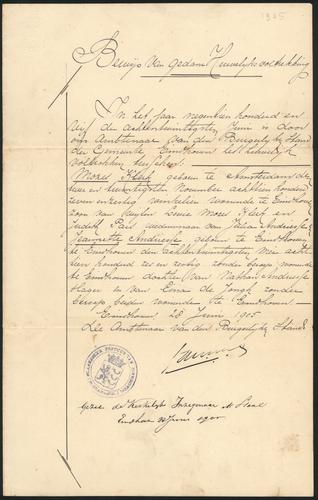 1905
Bewijs van gedane Huwelijksvoltrekking
In het jaar negentien honderd en
vijf de achtentwintigsten Juni is door
ons ambtenaar van den Burgerlijken Stand
der Gemeente Eindhoven het huwelijk
voltrokken tusschen:
Mozes Kleif geboren te Amsterdam den
twee en twintigsten November achttien honderd
zeven en zestig winkelier wonende te Eindhoven
zoon van Levie Mozes Kleif en
Judith Parl weduwnaar van Julia Andriesse
Jeannette Andriesse geboren te Eindhoven
te Eindhoven den achtentwintigsten Mei acht
tien honderd zes en zestig zonder beroep wonende
te Eindhoven dochter van Nathan Andriesse
slager en van Eva de Jongh zonder
beroep beiden wonende te Eindhoven
Eindhoven 28 Juni 1905
De Ambtenaar van den Burgerlijken Stand
Gezien de Kerkelijke
Eindhoven 28 Juni 1905